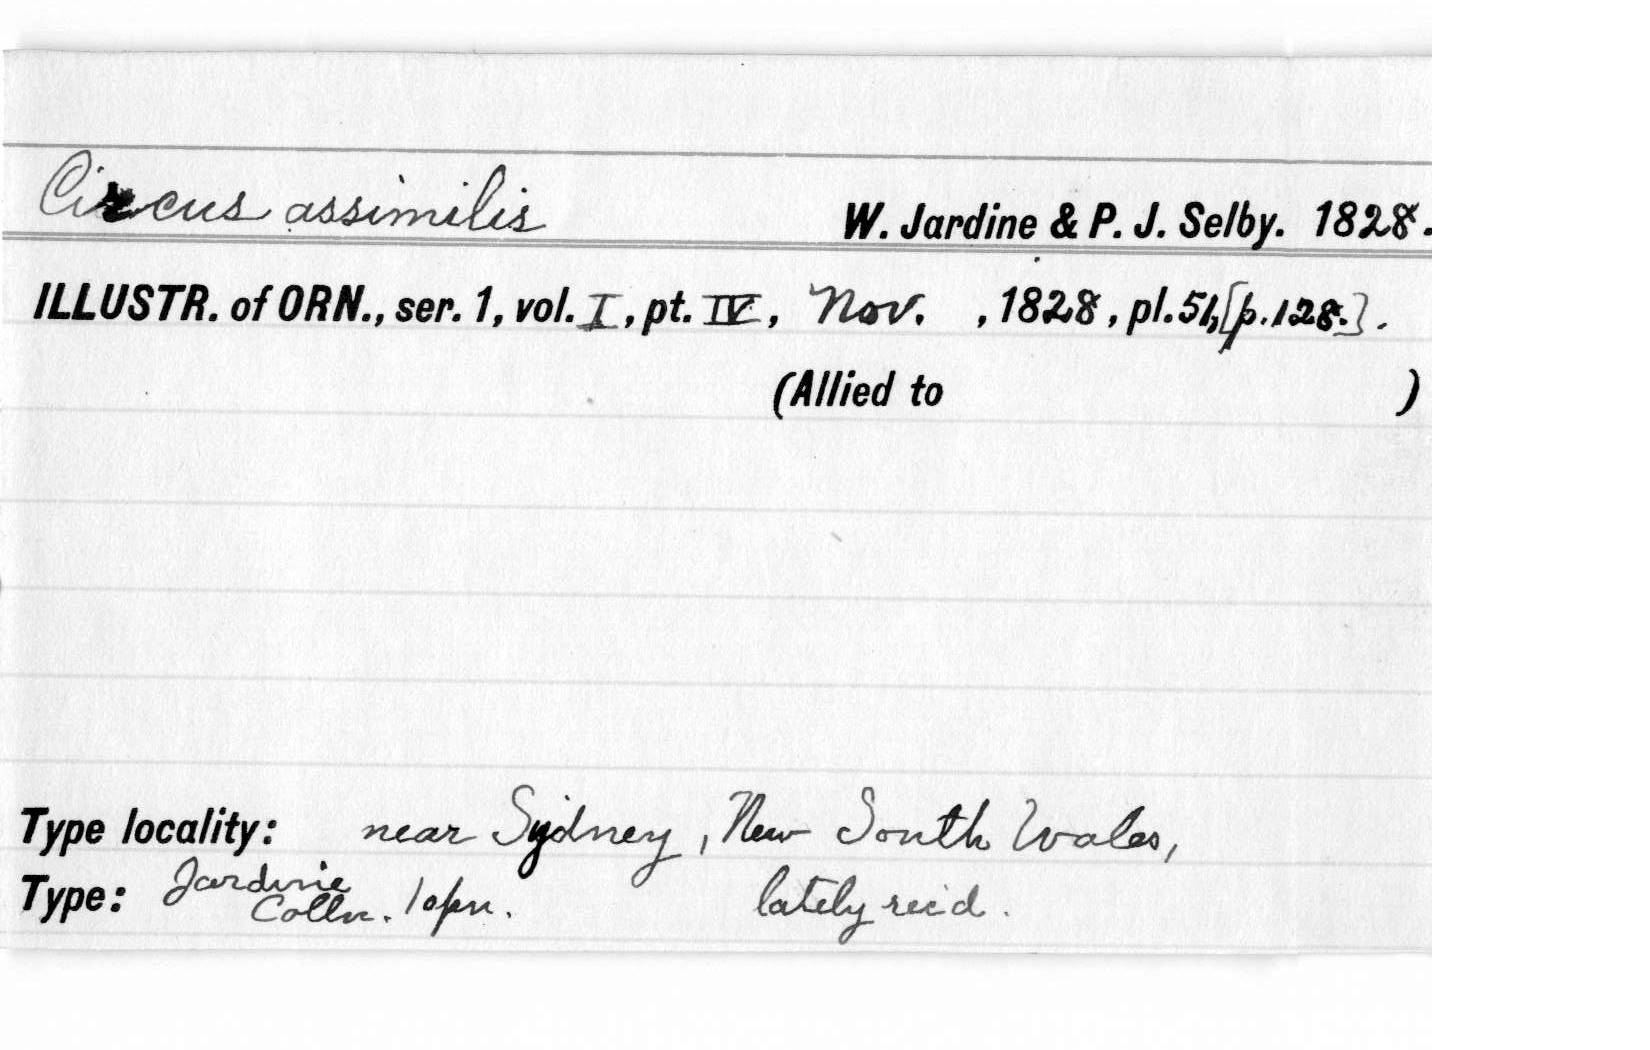 Circus assimilis W. Jardine & P. J. Selby. 1828.
ILLUSTR. of ORN., ser. 1, vol. I, pt. IV, Nov. , 1828, pl. 51, [p. 128.] .
(Allied to )
Type locality: near Sydney, New South Wales,
Type: Jardine Colln. 1 spn. lately rec'd.